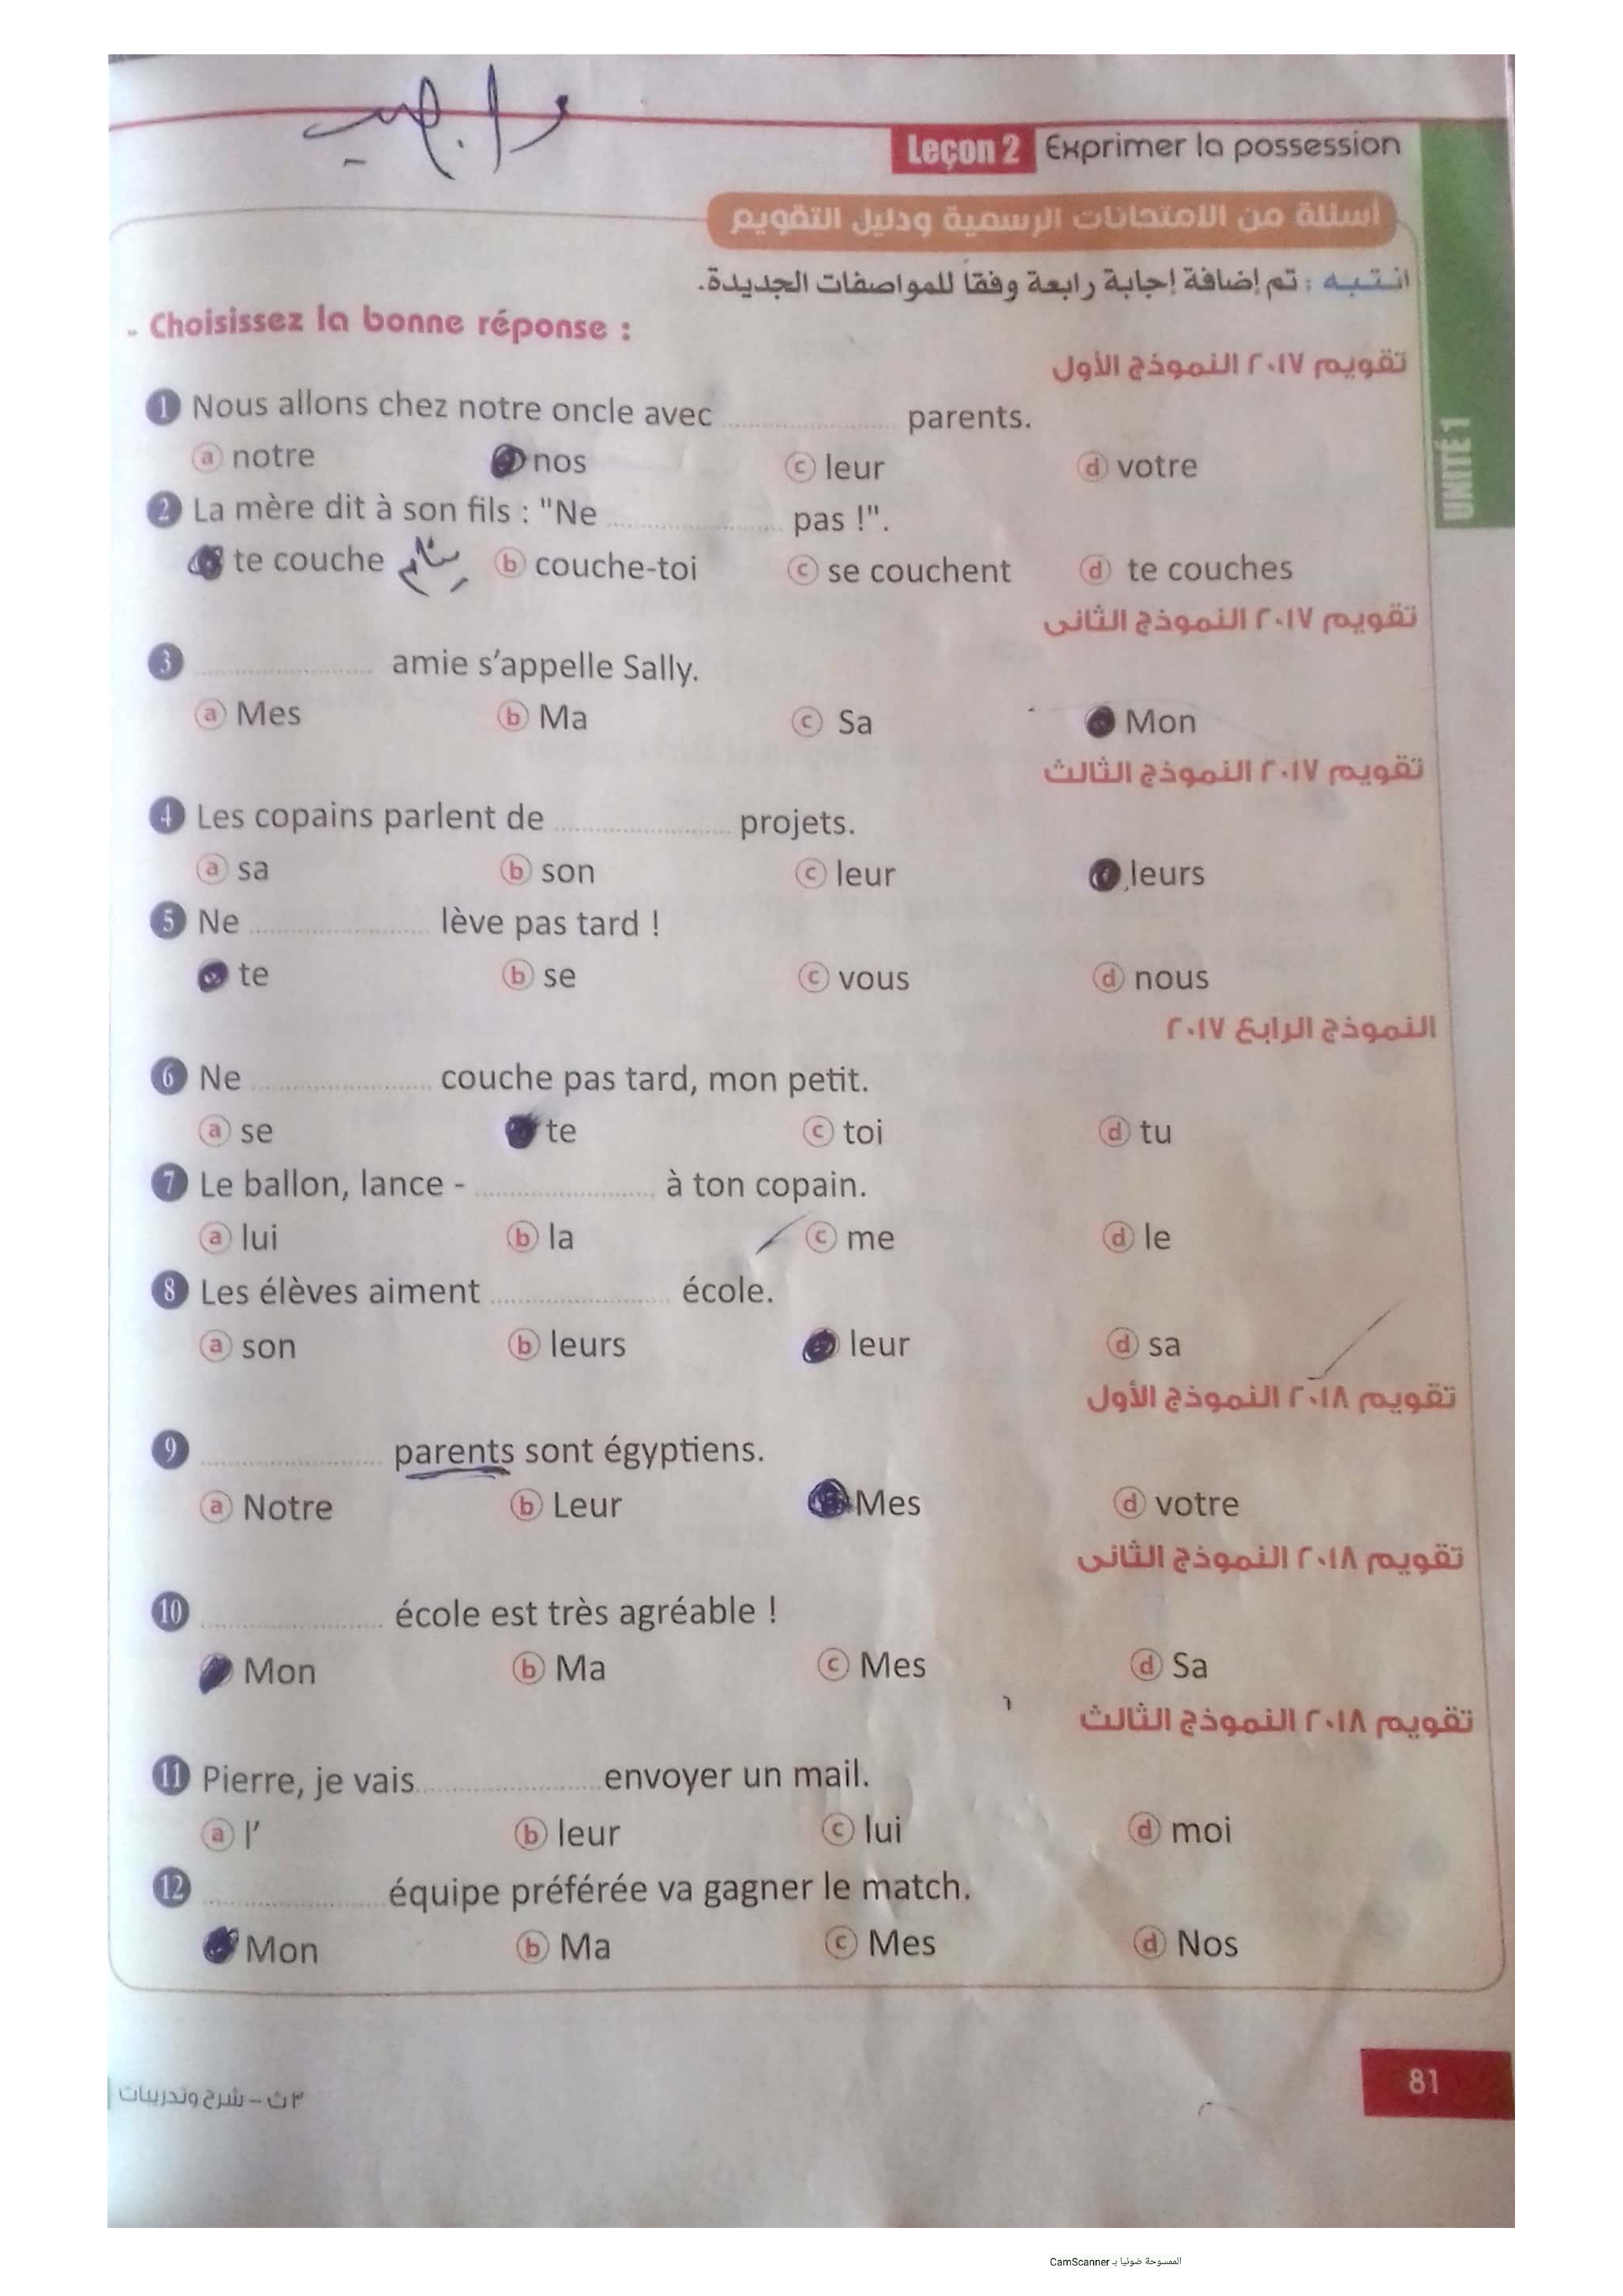 واجب
Leçon 2 Exprimer la possession
أسئلة من الامتحانات الرسمية ودليل التقويم
انتبه : تم إضافة إجابة رابعة وفقاً للمواصفات الجديدة.
- Choisissez la bonne réponse :
تقويم ٢٠١٧ النموذج الأول
1 Nous allons chez notre oncle avec .................... parents.
a notre nos c leur d votre
2 La mère dit à son fils : "Ne .................... pas !".
te couche b couche-toi c se couchent d te couches
تقويم ٢٠١٧ النموذج الثانى
3 .................... amie s’appelle Sally.
a Mes b Ma c Sa Mon
تقويم ٢٠١٧ النموذج الثالث
4 Les copains parlent de .................... projets.
a sa b son c leur leurs
5 Ne .................... lève pas tard !
te b se c vous d nous
النموذج الرابع ٢٠١٧
6 Ne .................... couche pas tard, mon petit.
a se te c toi d tu
7 Le ballon, lance - .................... à ton copain.
a lui b la c me d le
8 Les élèves aiment .................... école.
a son b leurs leur d sa
تقويم ٢٠١٨ النموذج الأول
9 .................... parents sont égyptiens.
a Notre b Leur Mes d votre
تقويم ٢٠١٨ النموذج الثانى
10 .................... école est très agréable !
Mon b Ma c Mes d Sa
تقويم ٢٠١٨ النموذج الثالث
11 Pierre, je vais .................... envoyer un mail.
a l’ b leur c lui d moi
12 .................... équipe préférée va gagner le match.
Mon b Ma c Mes d Nos
UNITÉ 1
٣ث - شرح وتدريبات
81
الممسوحة ضوئيا بـ CamScanner